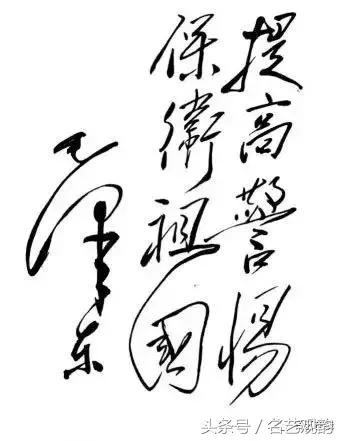 提高警惕
保衛祖國
毛泽东
头条号 / 名艺观韵